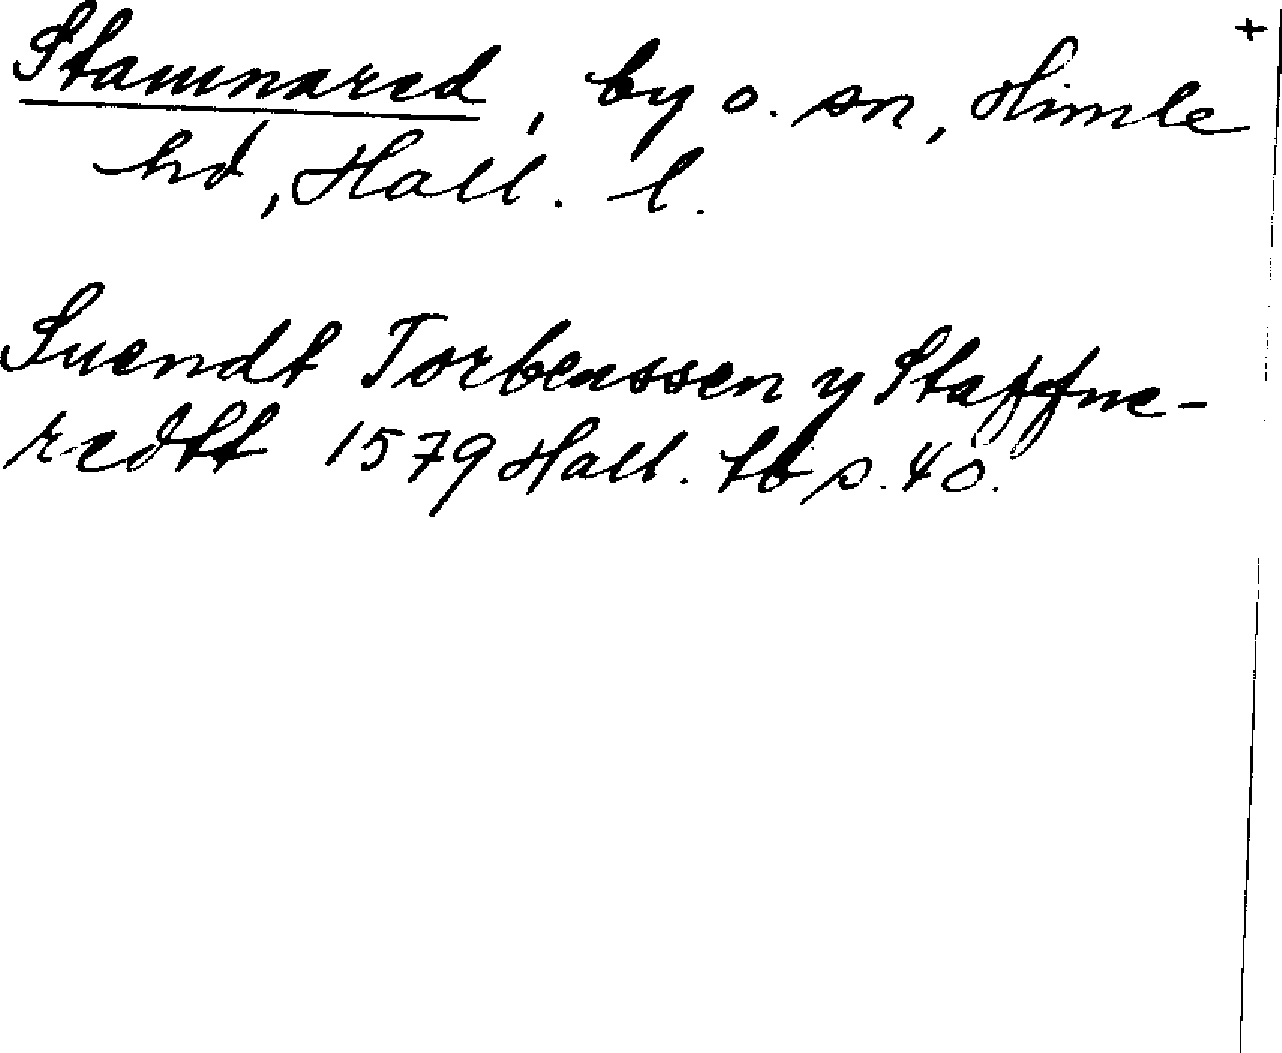 +
Stamnared, by o. sn, Himle
hd, Hall. l.
Suendt Torbenssen y Staffne-
redtt 1579 Hall. tb s. 40.